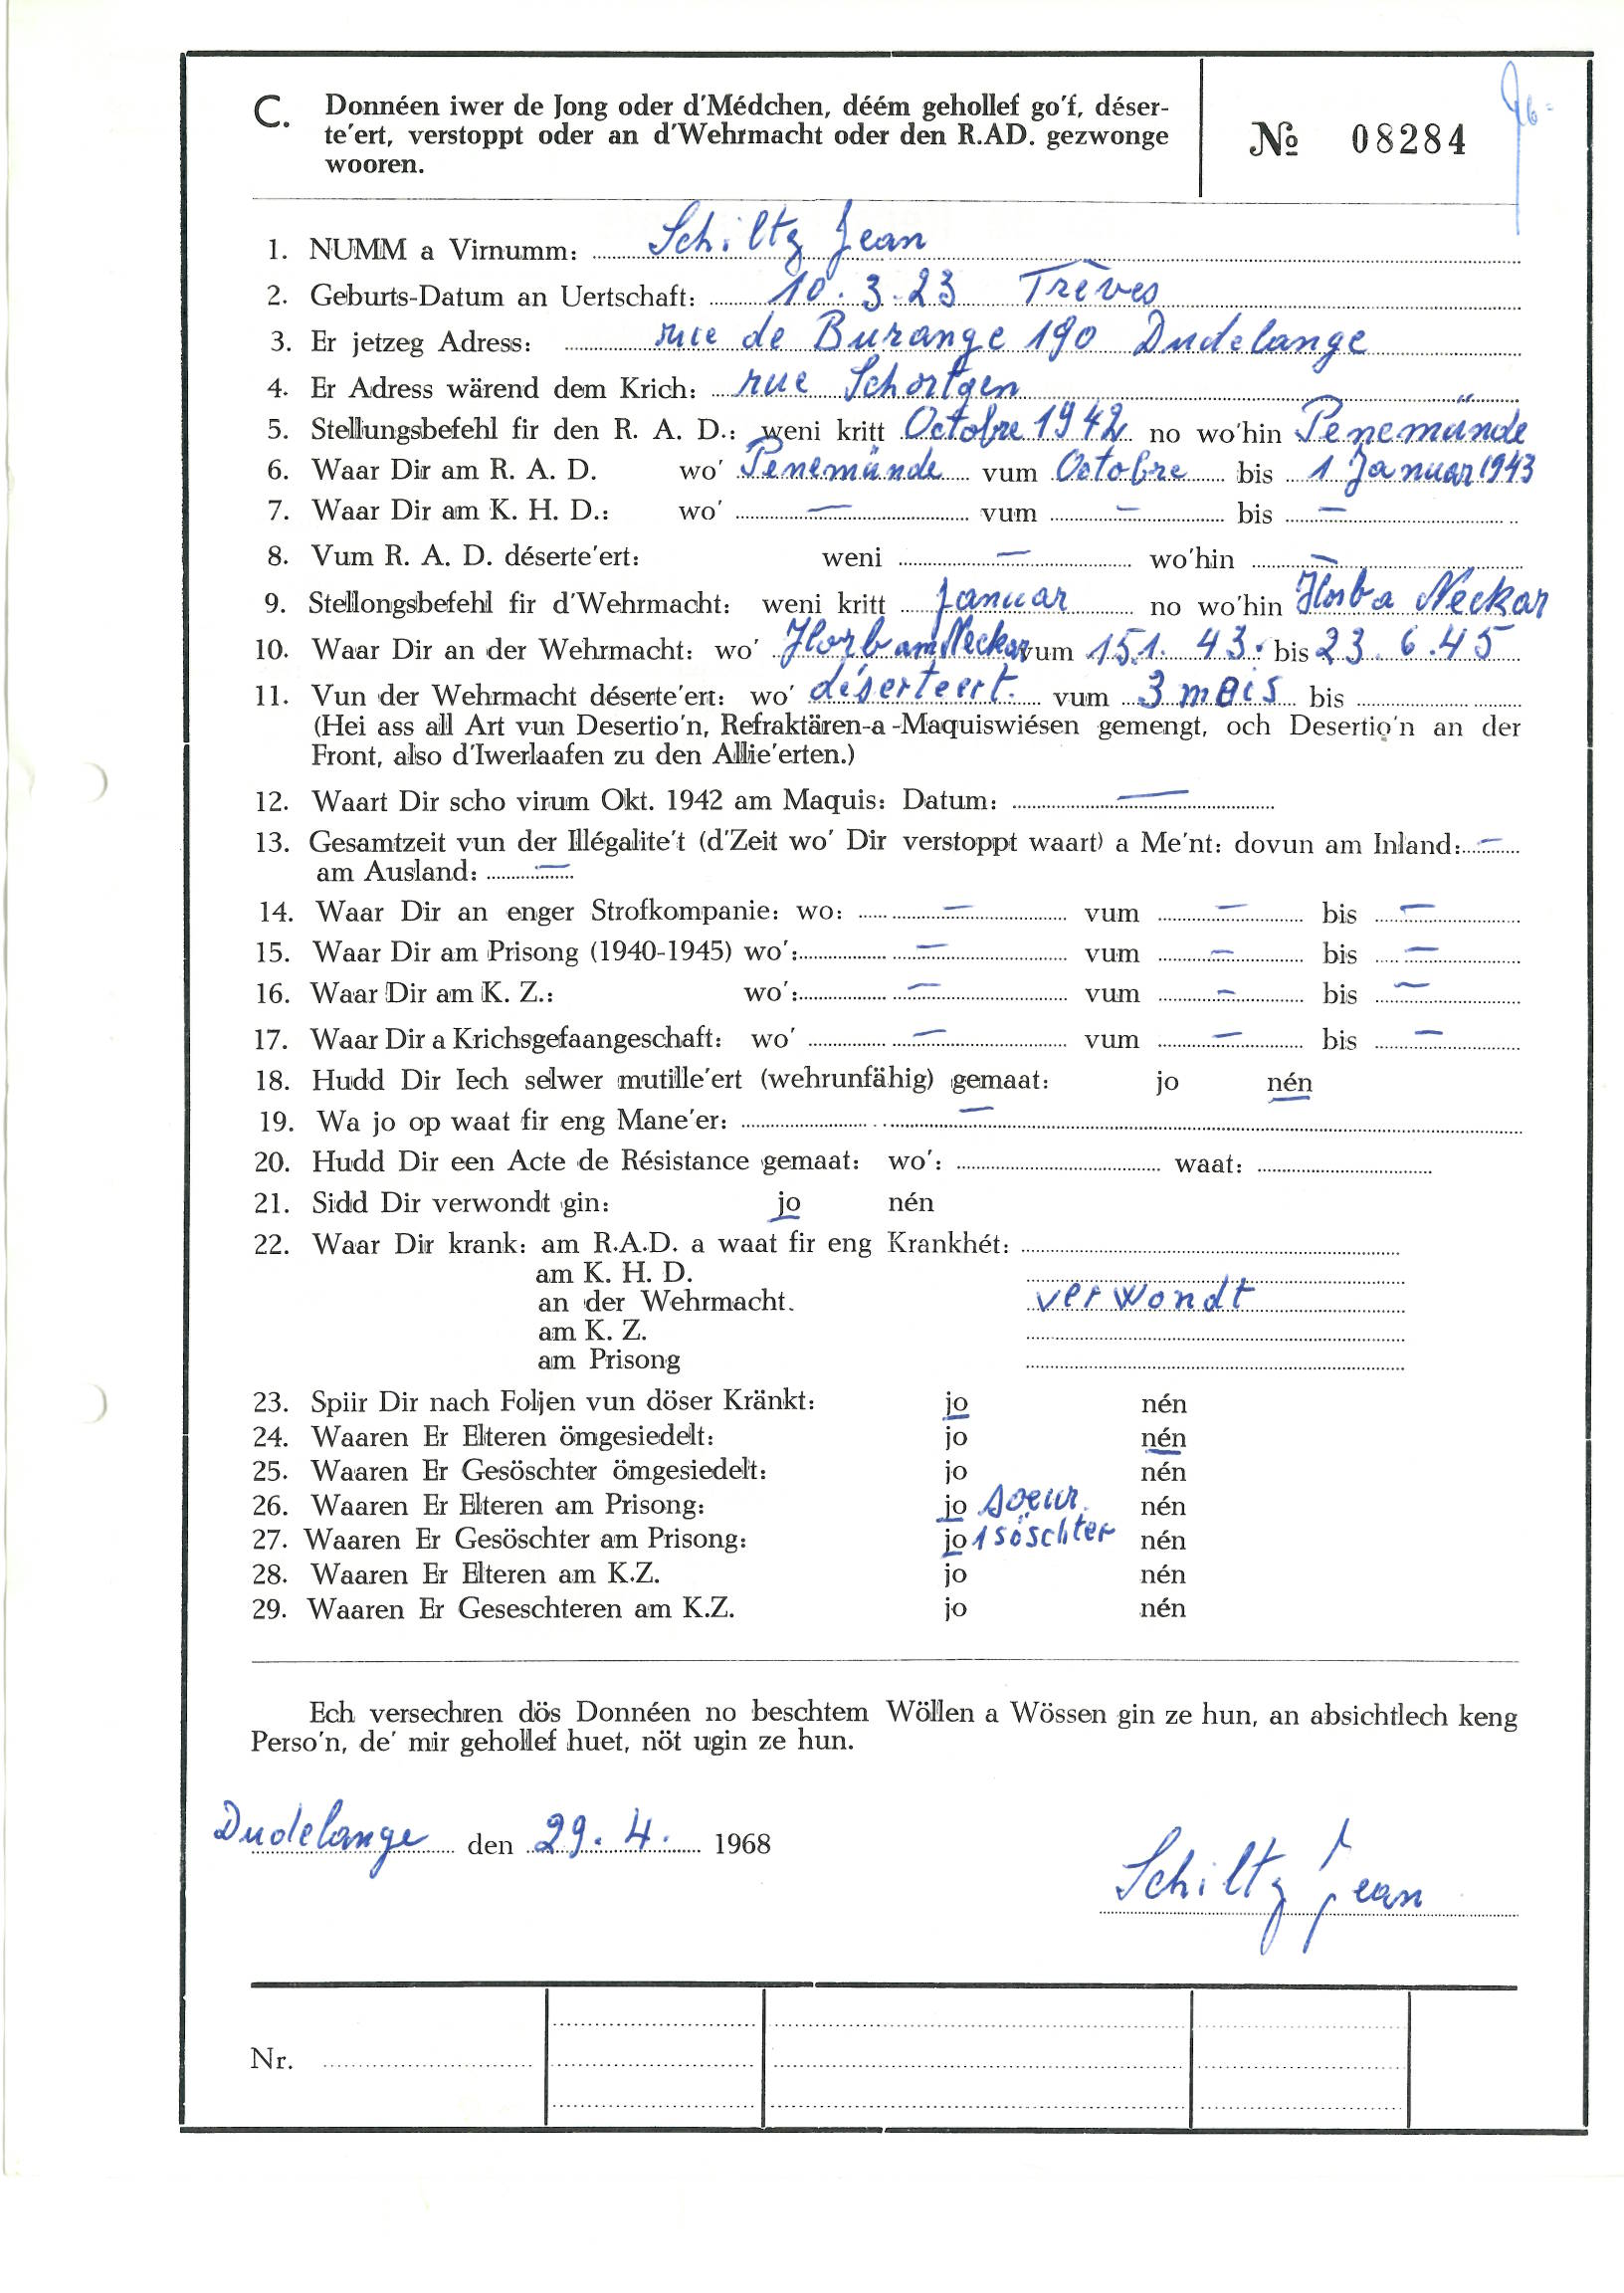 C. Donnéen iwer de Jong oder d'Médchen, déém gehollef go'f, déser-
te'ert, verstoppt oder an d'Wehrmacht oder den R.AD. gezwonge
wooren.
№ 08284
1. NUMM a Virnumm: Schiltz Jean
2. Geburts-Datum an Uertschaft: 10.3.23 Trèves
3. Er jetzeg Adress: rue de Burange 190 Dudelange
4. Er Adress wärend dem Krich: rue Schortgen
5. Stellungsbefehl fir den R. A. D.: weni kritt Octobre 1942 no wo'hin Penemünde
6. Waar Dir am R. A. D. wo' Penemünde vum Octobre bis 1 Januar 1943
7. Waar Dir am K. H. D.: wo' — vum — bis —
8. Vum R. A. D. déserte'ert: weni — wo'hin —
9. Stellongsbefehl fir d'Wehrmacht: weni kritt Januar no wo'hin Horb a Neckar
10. Waar Dir an der Wehrmacht: wo' Horb am Neckar vum 15.1. 43. bis 23.6.45
11. Vun der Wehrmacht déserte'ert: wo' déserteert. vum 3 mois bis
(Hei ass all Art vun Desertio'n, Refraktären-a -Maquiswiésen gemengt, och Desertio'n an der
Front, also d'Iwerlaafen zu den Allie'erten.)
12. Waart Dir scho virum Okt. 1942 am Maquis: Datum: —
13. Gesamtzeit vun der Illégalite't (d'Zeit wo' Dir verstoppt waart) a Me'nt: dovun am Inland: —
am Ausland: —
14. Waar Dir an enger Strofkompanie: wo: — vum — bis —
15. Waar Dir am Prisong (1940-1945) wo': — vum — bis —
16. Waar Dir am K. Z.: wo': — vum — bis —
17. Waar Dir a Krichsgefaangeschaft: wo' — vum — bis —
18. Hudd Dir Iech selwer mutille'ert (wehrunfähig) gemaat: jo nén
19. Wa jo op waat fir eng Mane'er: —
20. Hudd Dir een Acte de Résistance gemaat: wo': waat:
21. Sidd Dir verwondt gin: jo nén
22. Waar Dir krank: am R.A.D. a waat fir eng Krankhét:
am K. H. D.
an der Wehrmacht. verwondt
am K. Z.
am Prisong
23. Spiir Dir nach Foljen vun döser Kränkt: jo nén
24. Waaren Er Elteren ömgesiedelt: jo nén
25. Waaren Er Gesöschter ömgesiedelt: jo nén
26. Waaren Er Elteren am Prisong: jo soeur. nén
27. Waaren Er Gesöschter am Prisong: jo 1 söschter nén
28. Waaren Er Elteren am K.Z. jo nén
29. Waaren Er Geseschteren am K.Z. jo nén
Ech versechren dös Donnéen no beschtem Wöllen a Wössen gin ze hun, an absichtlech keng
Perso'n, de' mir gehollef huet, nöt ugin ze hun.
Dudelange den 29.4. 1968
Schiltz Jean
Nr.